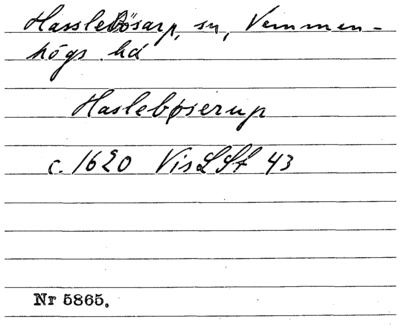 Hasslebösarp, sn, Vemmen-
högs hd
Haslebøserup
c. 1620 VisLSt 43
Nr 5865.